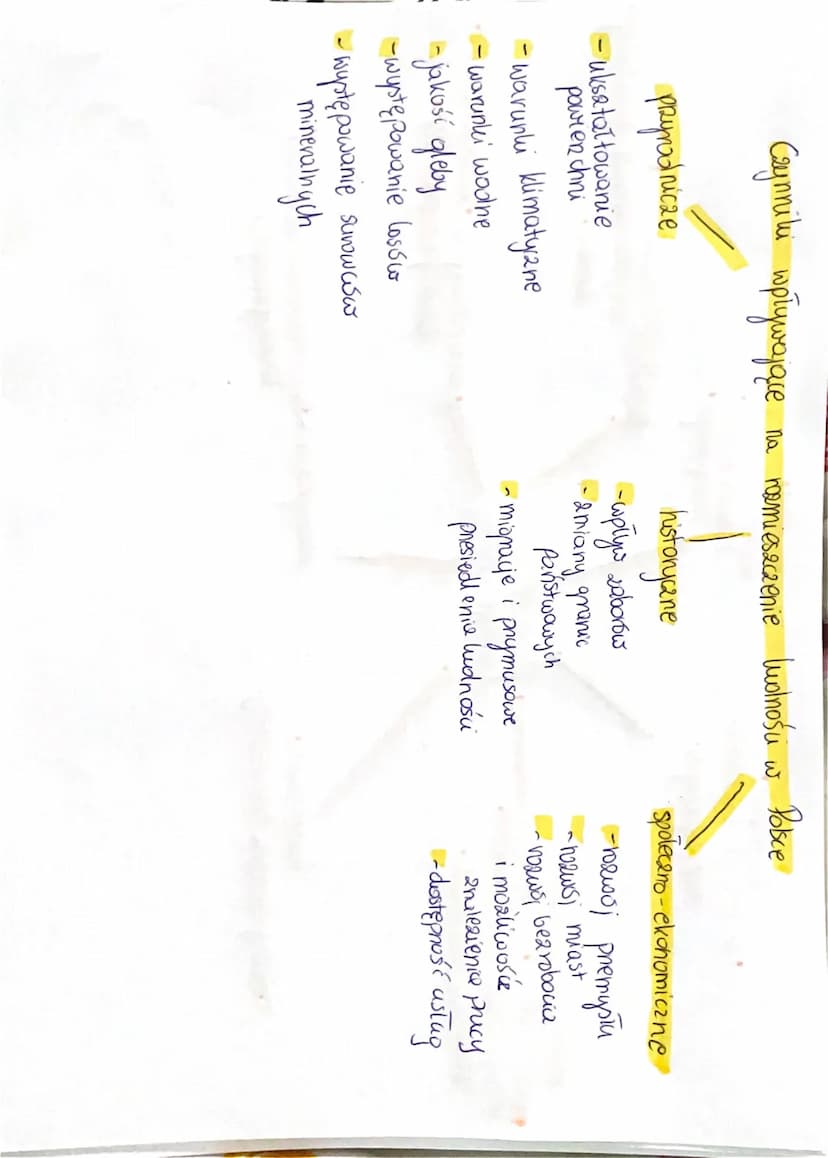 Czynniki wpływające na rozmieszczenie ludności w Polsce
przyrodnicze
- ukształtowanie
powierzchni
- warunki klimatyczne
- warunki wodne
- jakość gleby
- występowanie lasów
- występowanie surowców
mineralnych
historyczne
- wpływ zaborów
- zmiany granic
państwowych
- migracje i przymusowe
przesiedlenia ludności
społeczno-ekonomiczne
- rozwój przemysłu
- rozwój miast
- rozwój bezrobocia
i możliwość
znalezienia pracy
- dostępność usług